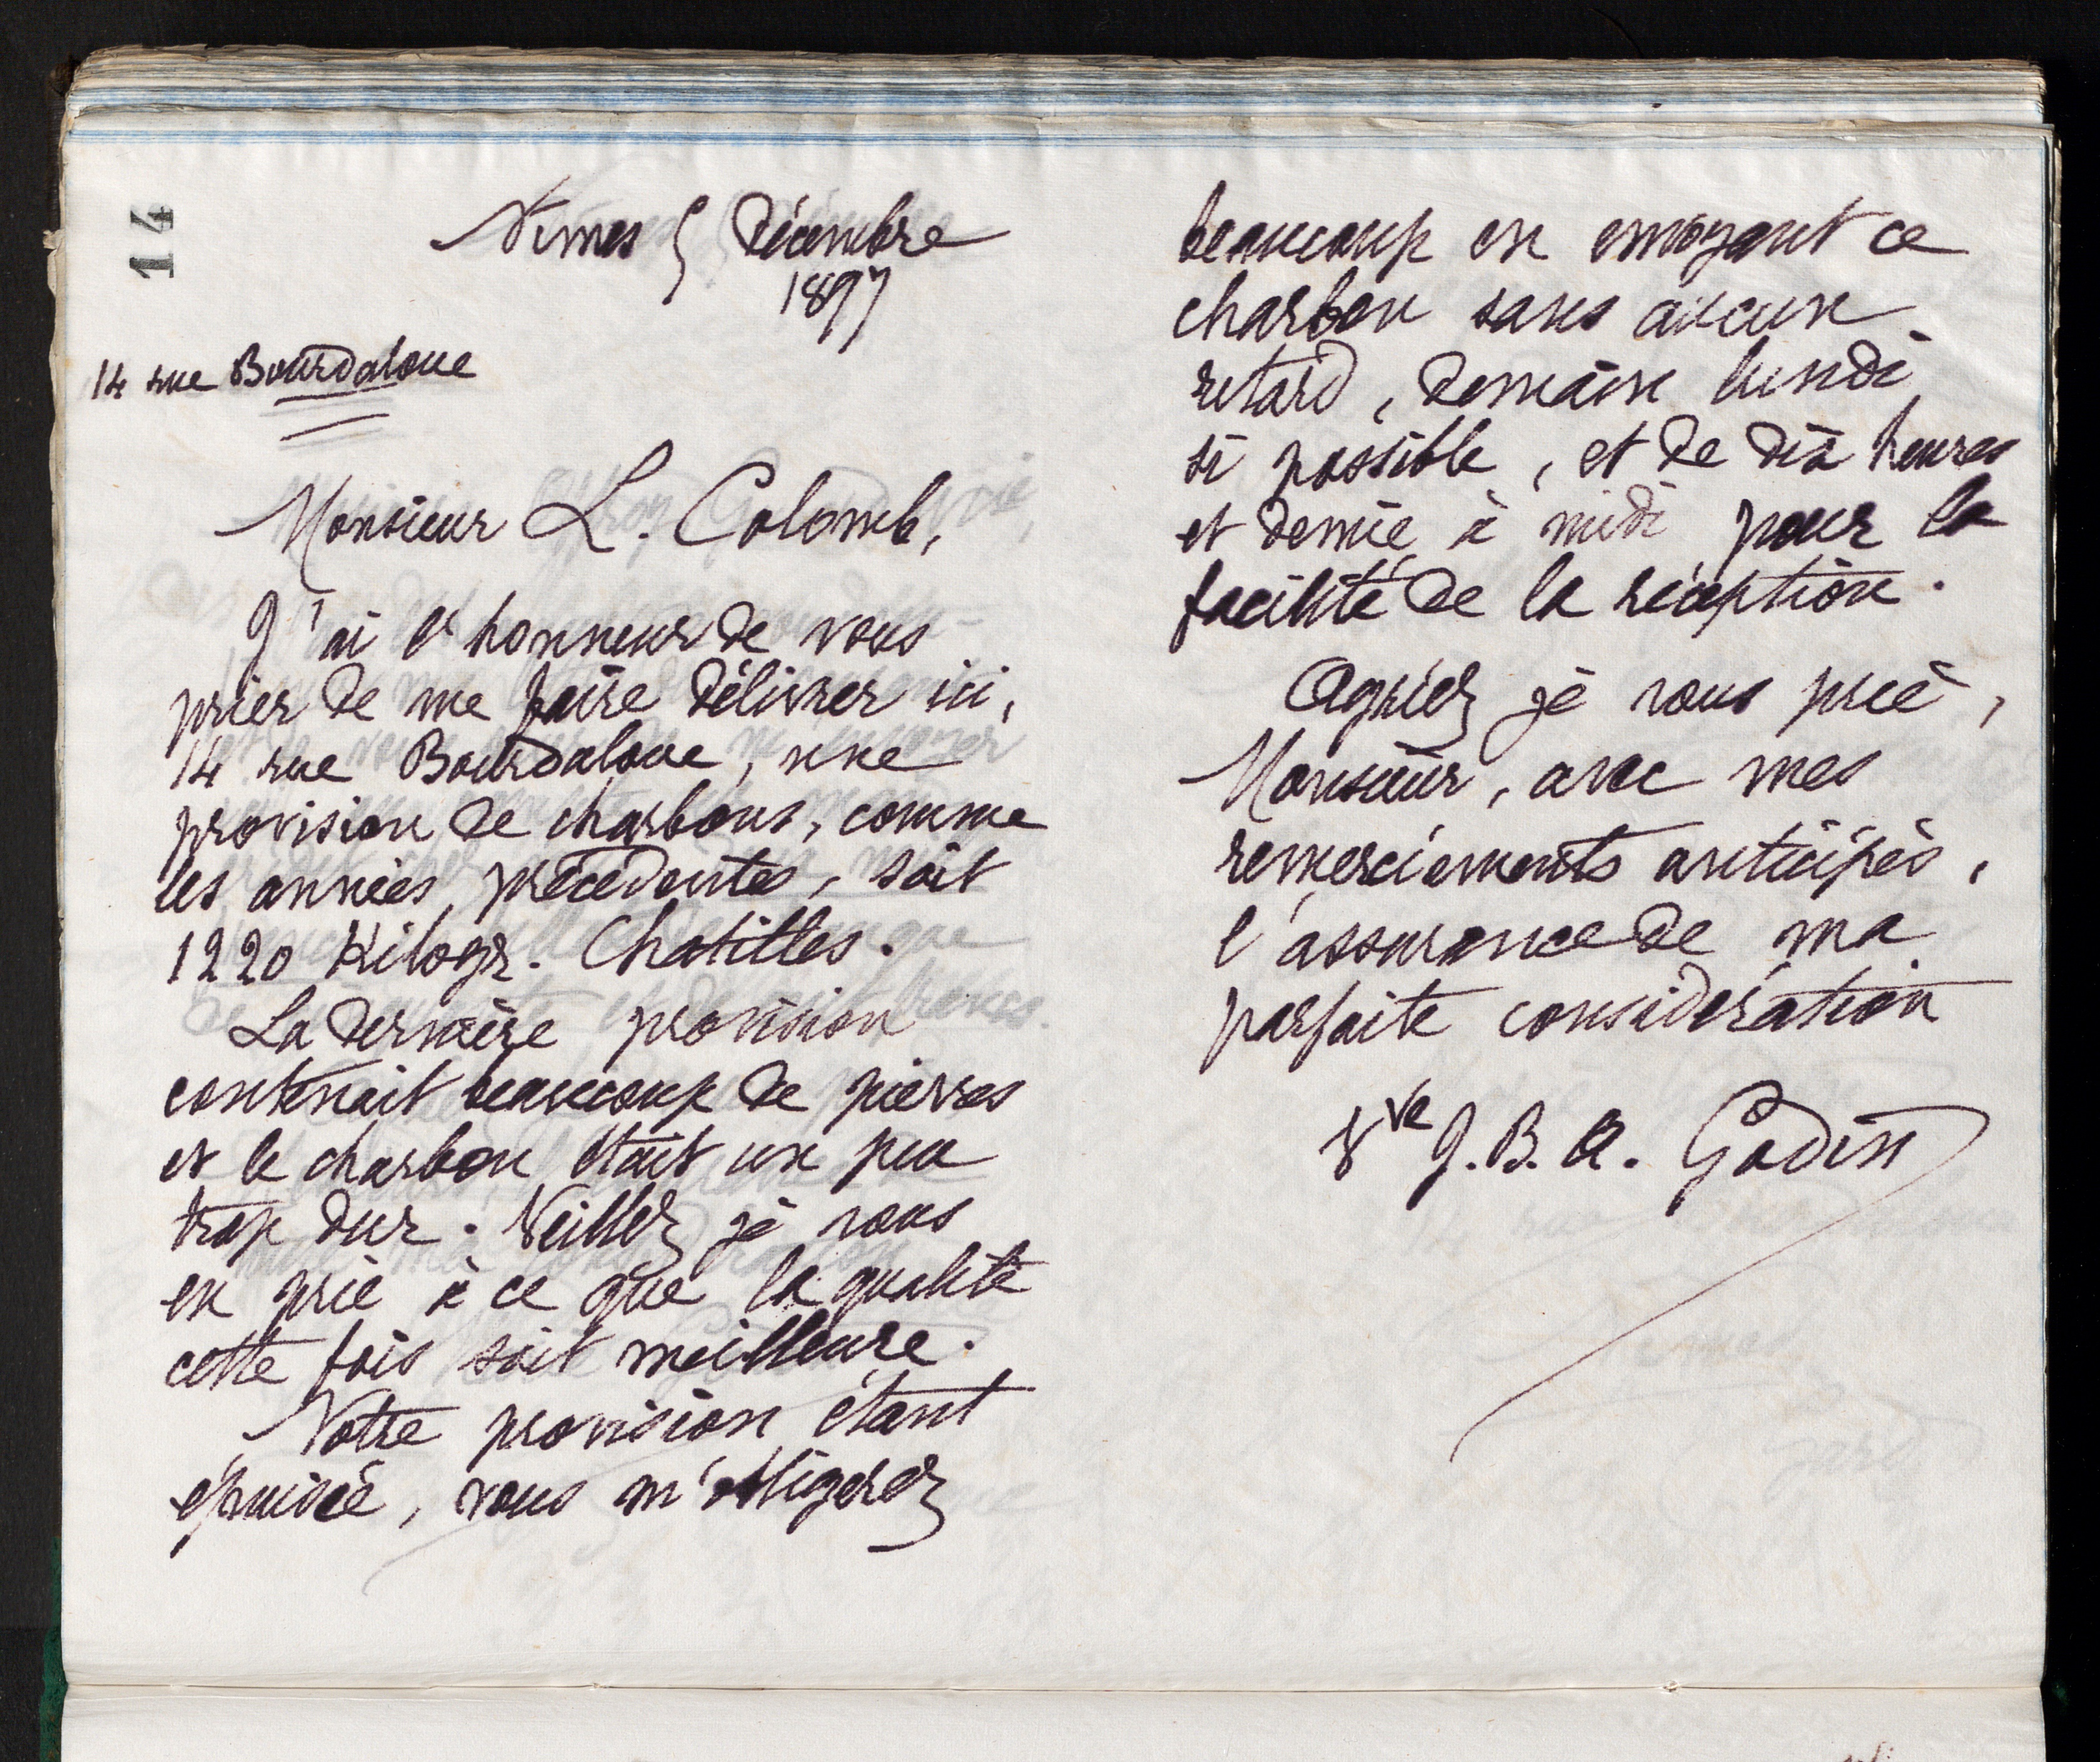 14
Nimes 5 Décembre
1897
14 rue Bourdaloue
Monsieur L. Colomb,
J'ai l'honneur de vous
prier de me faire délivrer ici,
14 rue Bourdaloue, une
provision de charbons, comme
les années précédentes, soit
1220 Kilogr. Chatilles.
La dernière provision
contenait beaucoup de pierres
et le charbon était un peu
trop dur. Veillez je vous
en prie à ce que la qualité
cette fois soit meilleure.
Notre provision étant
épuisée, vous m'obligerez
beaucoup en envoyant ce
charbon sans aucun
retard, demain lundi
si possible, et de dix heures
et demie à midi pour la
facilité de la réception.
Agréez je vous prie,
Monsieur, avec mes
remerciements anticipés,
l'assurance de ma
parfaite considération
Vve J. B. A. Godin